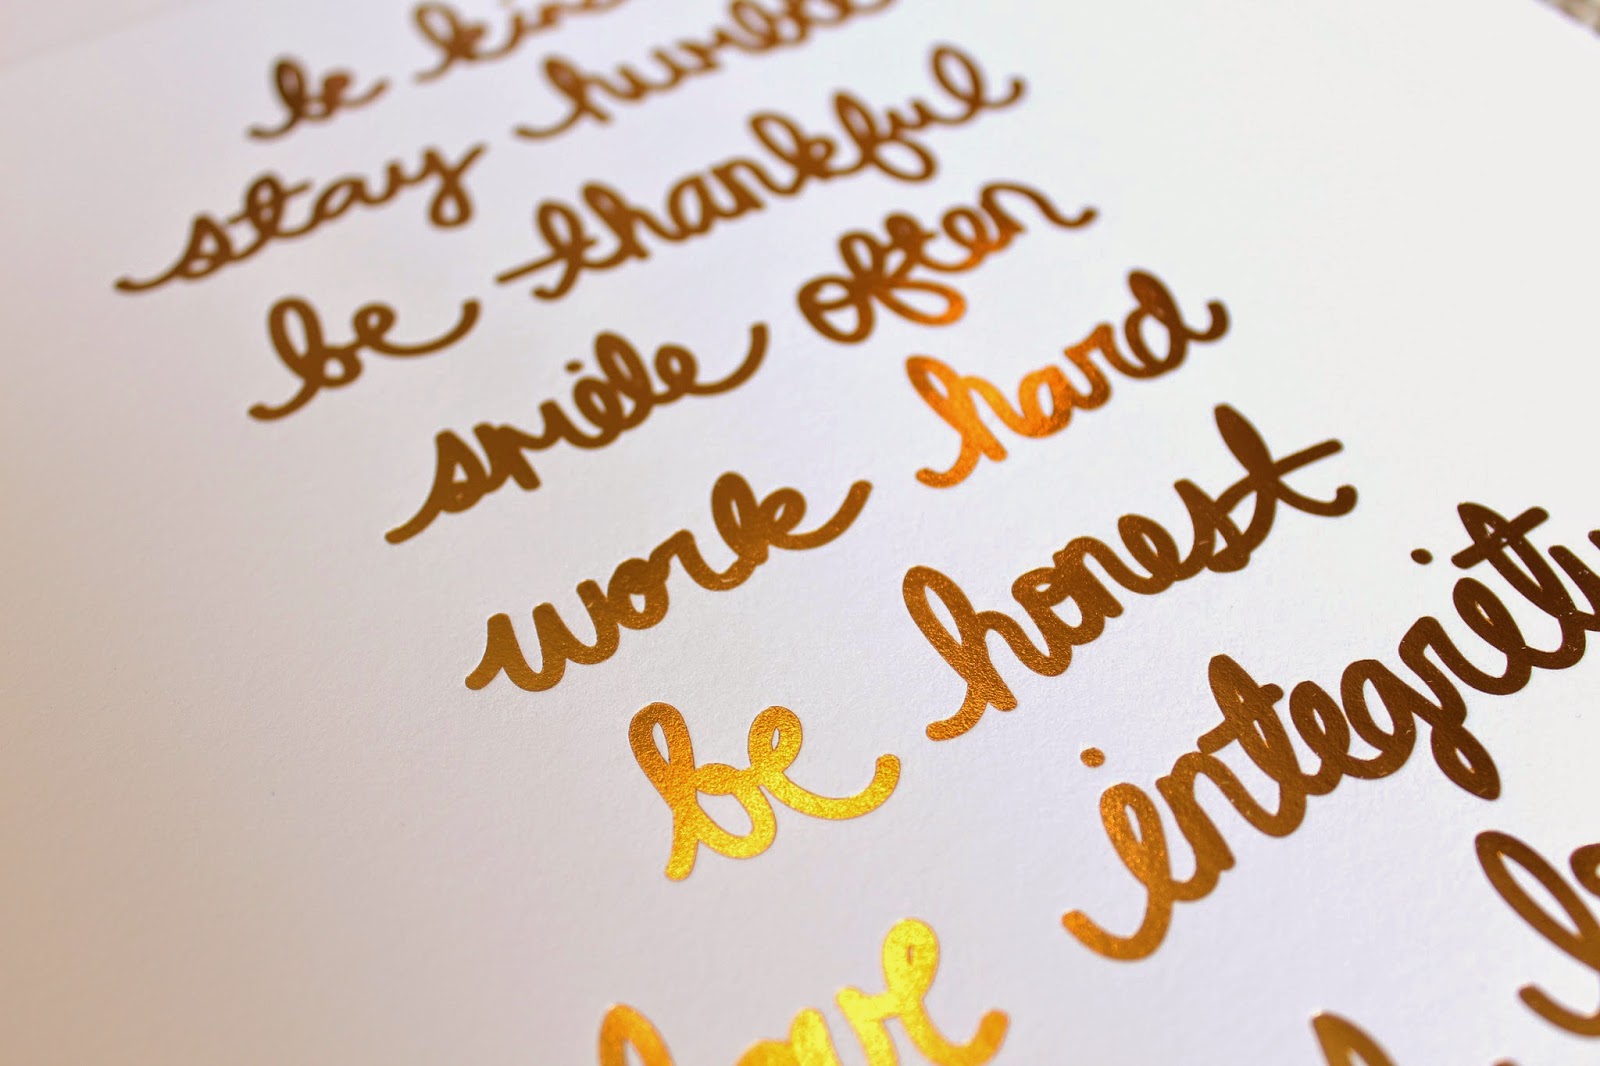 be kind
stay humble
be thankful
smile often
work hard
be honest
have integrity